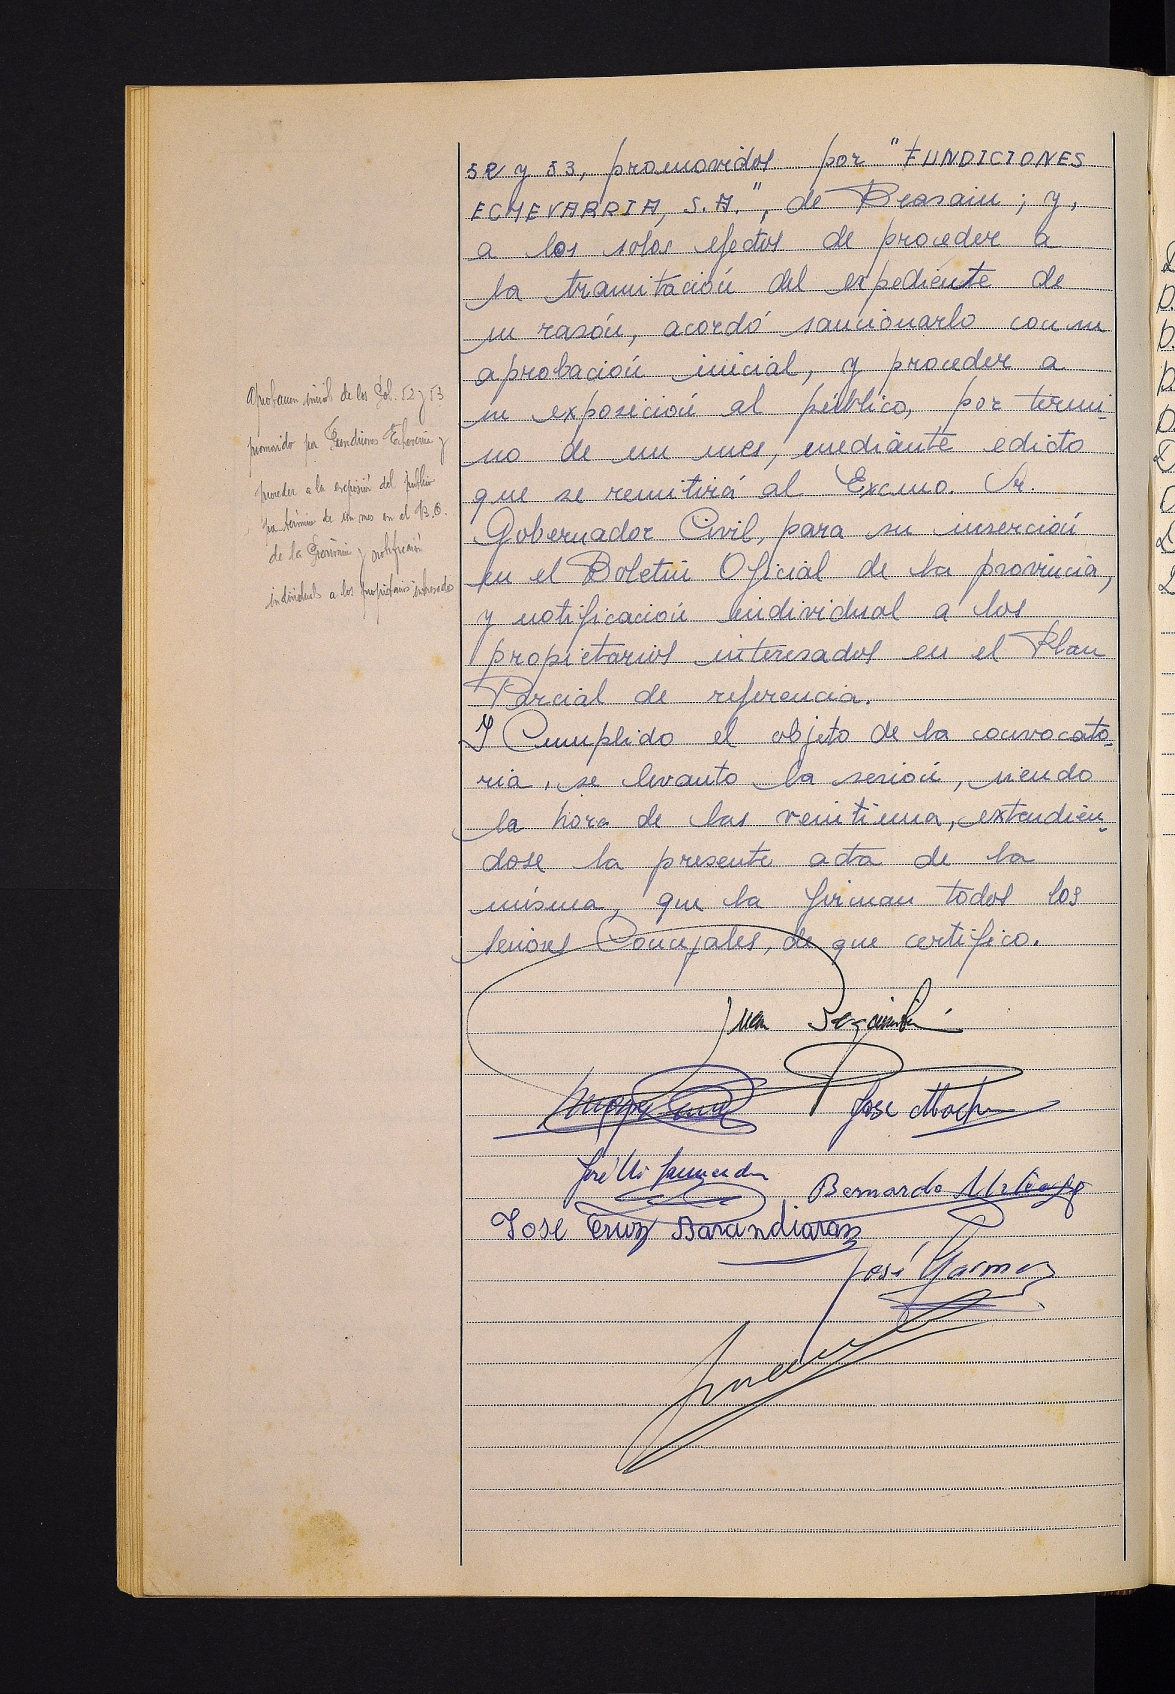 52 y 53, promovidos por "FUNDICIONES
ECHEVARRIA, S.A.", de Beasain; y,
a los solos efectos de proceder a
la tramitación del expediente de
su razón, acordó sancionarlo con su
aprobación inicial, y proceder a
su exposición al público, por termi-
no de un mes, mediante edicto
que se remitirá al Excmo. Sr.
Gobernador Civil, para su inserción
en el Boletín Oficial de la provincia,
y notificación individual a los
propietarios interesados en el Plan
Parcial de referencia.
Y Cumplido el objeto de la convocato-
ria, se levanto la sesión, siendo
la hora de las veintiuna, extendién-
dose la presente acta de la
misma, que la firman todos los
señores Concejales, de que certifico.
Aprobacion inicial de los Pol. 52 y 53
promovido por Fundiciones Echeverria y
proceder a la exposición del publico
por término de un mes en el B.O.
de la Provincia y notificación
individual a los propietarios interesados
Juan
José
José
Bernardo
Jose Cruz Barandiaran
José